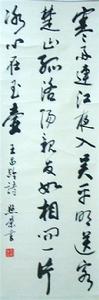 寒雨連江夜入吳平明送客
楚山孤洛陽親友如相問一片
冰心在玉壺 王昌齡詩 書